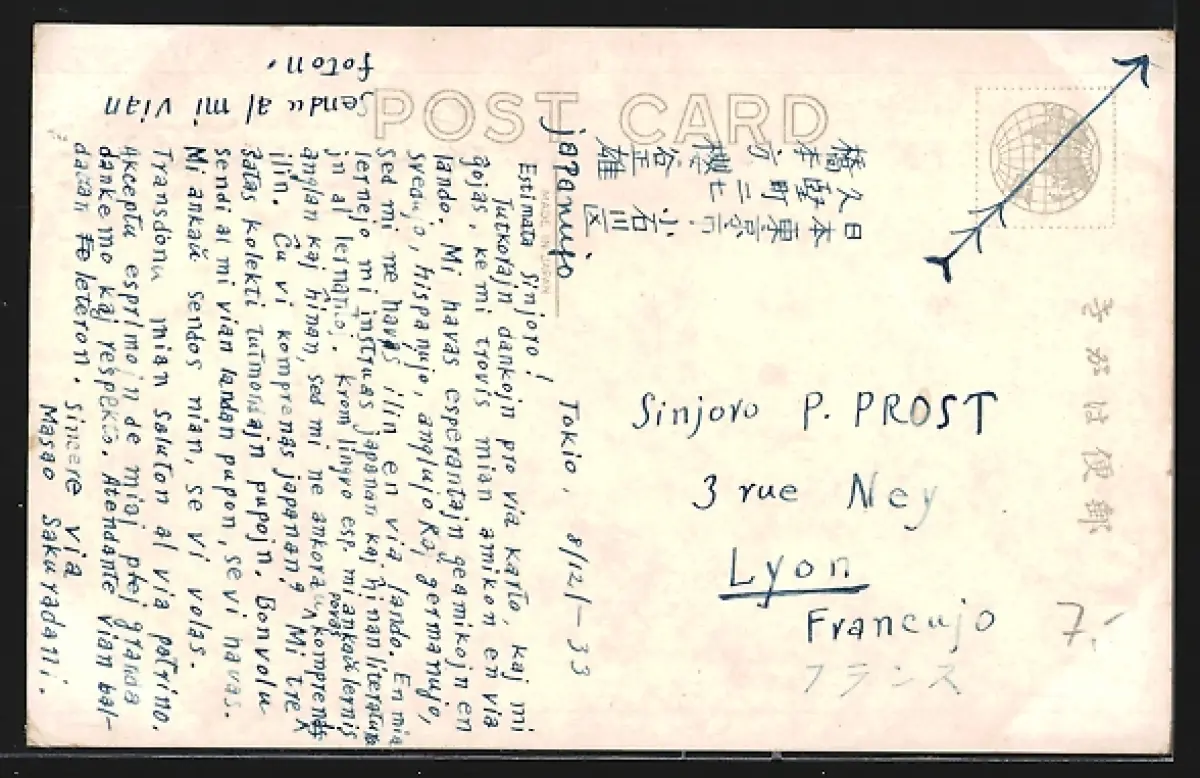 POST CARD
MADE IN JAPAN
郵便はがき
日本東京市小石川区
久堅町二七
橋本方
櫻谷正雄
Japanujo
Tokio, 8/12/-33
Estimata sinjoro!
Tutkorajn dankojn pro via karto, kaj mi
ĝojas, ke mi trovis mian amikon en via
lando. Mi havas esperantajn geamikojn en
sveujo, hispanujo, anglujo kaj germanujo,
sed mi ne havas ilin en via lando. En mia
lernejo mi instruas japanan kaj ĥinan literaturo
jn al lernanoj. krom lingvo esp. mi ankaŭ lernis
anglan kaj ĥinan, sed mi ne ankoraŭ povas kompreni
ilin. Ĉu vi komprenas japanan? Mi tre
ŝatas kolekti tutmondajn pupojn. Bonvolu
sendi al mi vian landan pupon, se vi havas.
Mi ankaŭ sendos mian, se vi volas.
Transdonu mian saluton al via patrino.
Akceptu esprimojn de miaj plej granda
danke mo kaj respekto. Atendante vian bal-
daŭan leteron.
Sincere via
Masao Sakuradani.
Sendu al mi vian
foton.
Sinjoro P. PROST
3 rue Ney
Lyon
Francujo
フランス
7.-